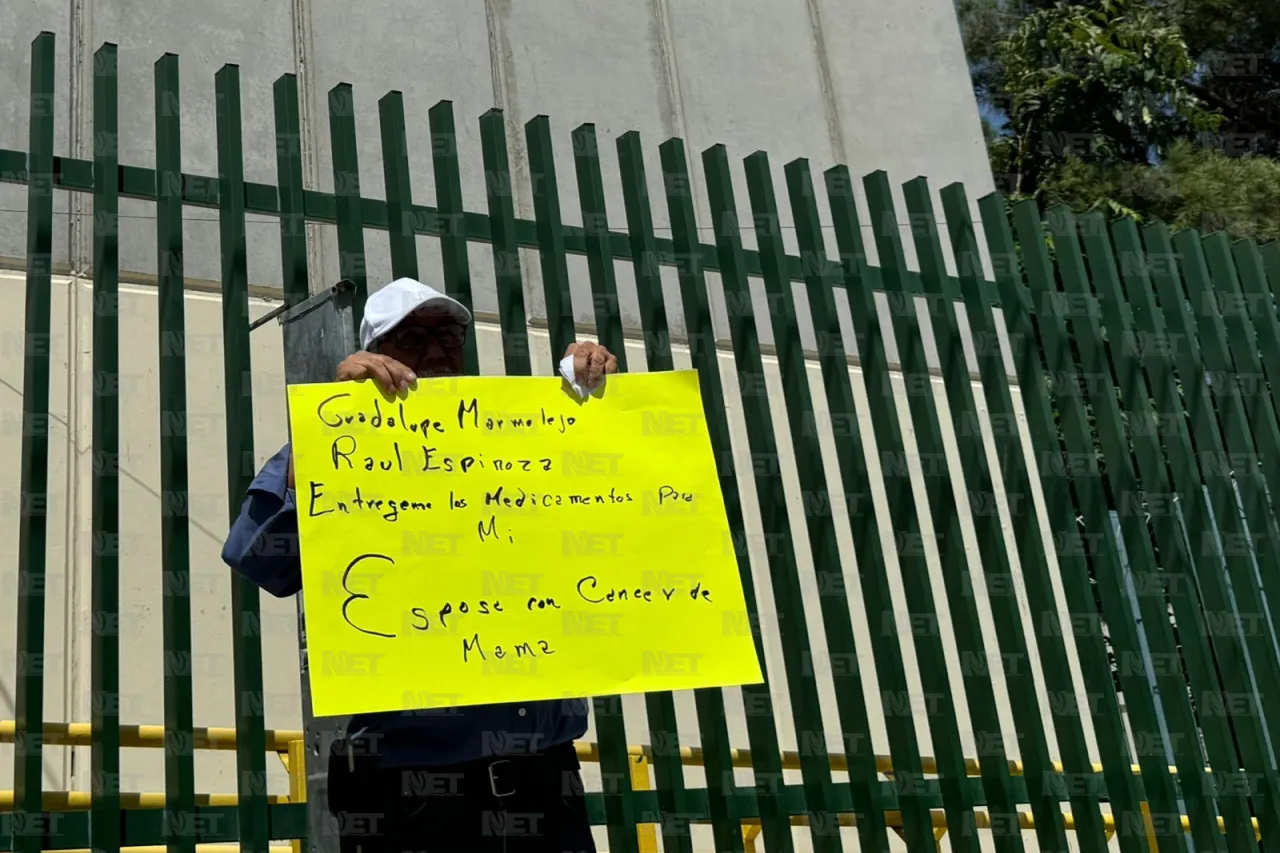 Guadalupe Marmolejo
Raul Espinoza
Entregeme los Medicamentos Para
Mi
Esposa con Cancer de
Mama
NET